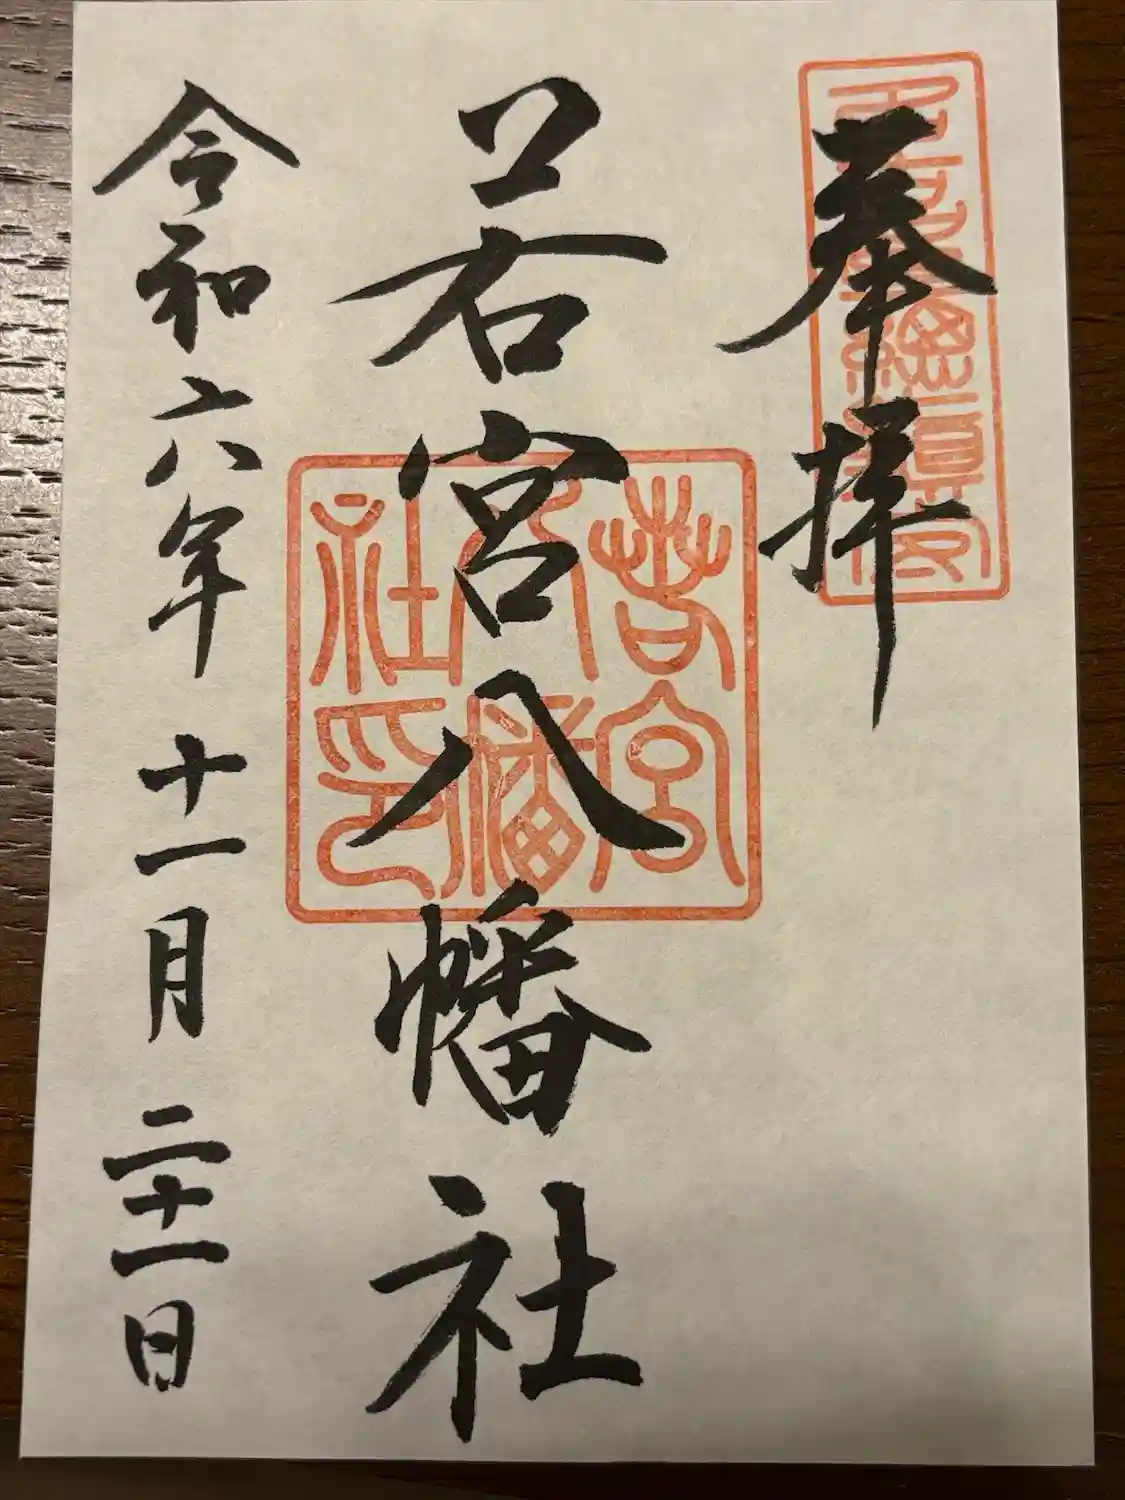 奉拝
若宮八幡社
若宮八幡社印
令和六年十一月二十一日